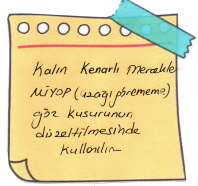 Kalın Kenarlı Mercekler
MİYOP (uzağı görememe)
göz kusurunun
düzeltilmesinde
kullanılır